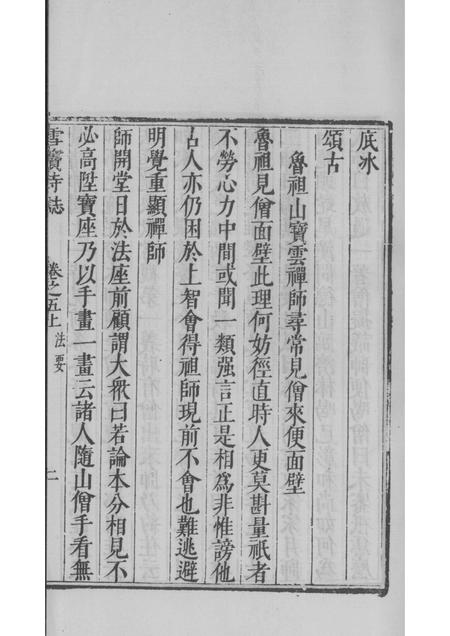 底冰
頌古
魯祖山寶雲禪師尋常見僧來便面壁
魯祖見僧面壁此理何妨徑直時人更莫斟量祇者
不勞心力中間或聞一類强言正是相為非惟謗他
古人亦仍困於上智會得祖師現前不會也難逃避
明覺重顯禪師
師開堂日於法座前顧謂大衆曰若論本分相見不
必高陞寶座乃以手畫一畫云諸人隨山僧手看無
雪竇寺誌
卷之五上
法要